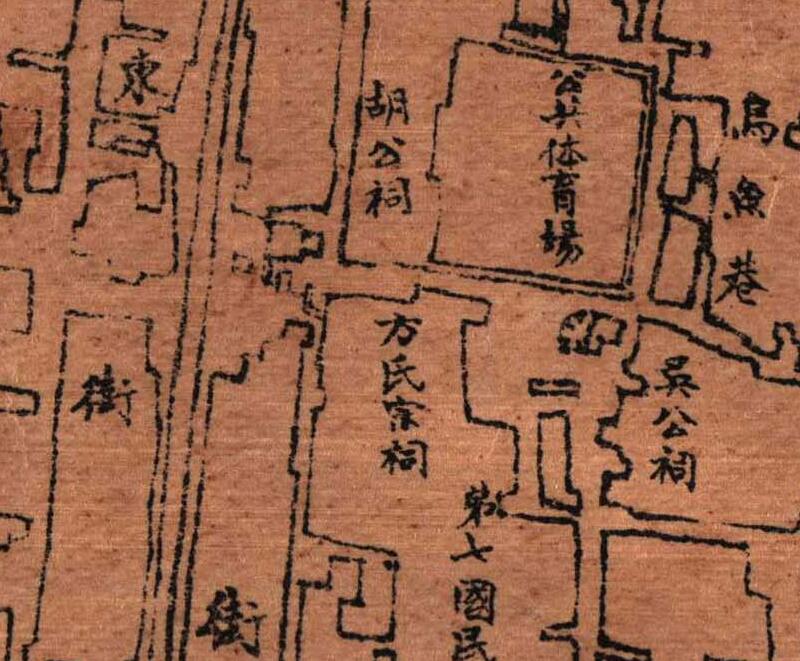 東
胡公祠
公共体育場
烏魚巷
街
方氏宗祠
吳公祠
第七國民
街